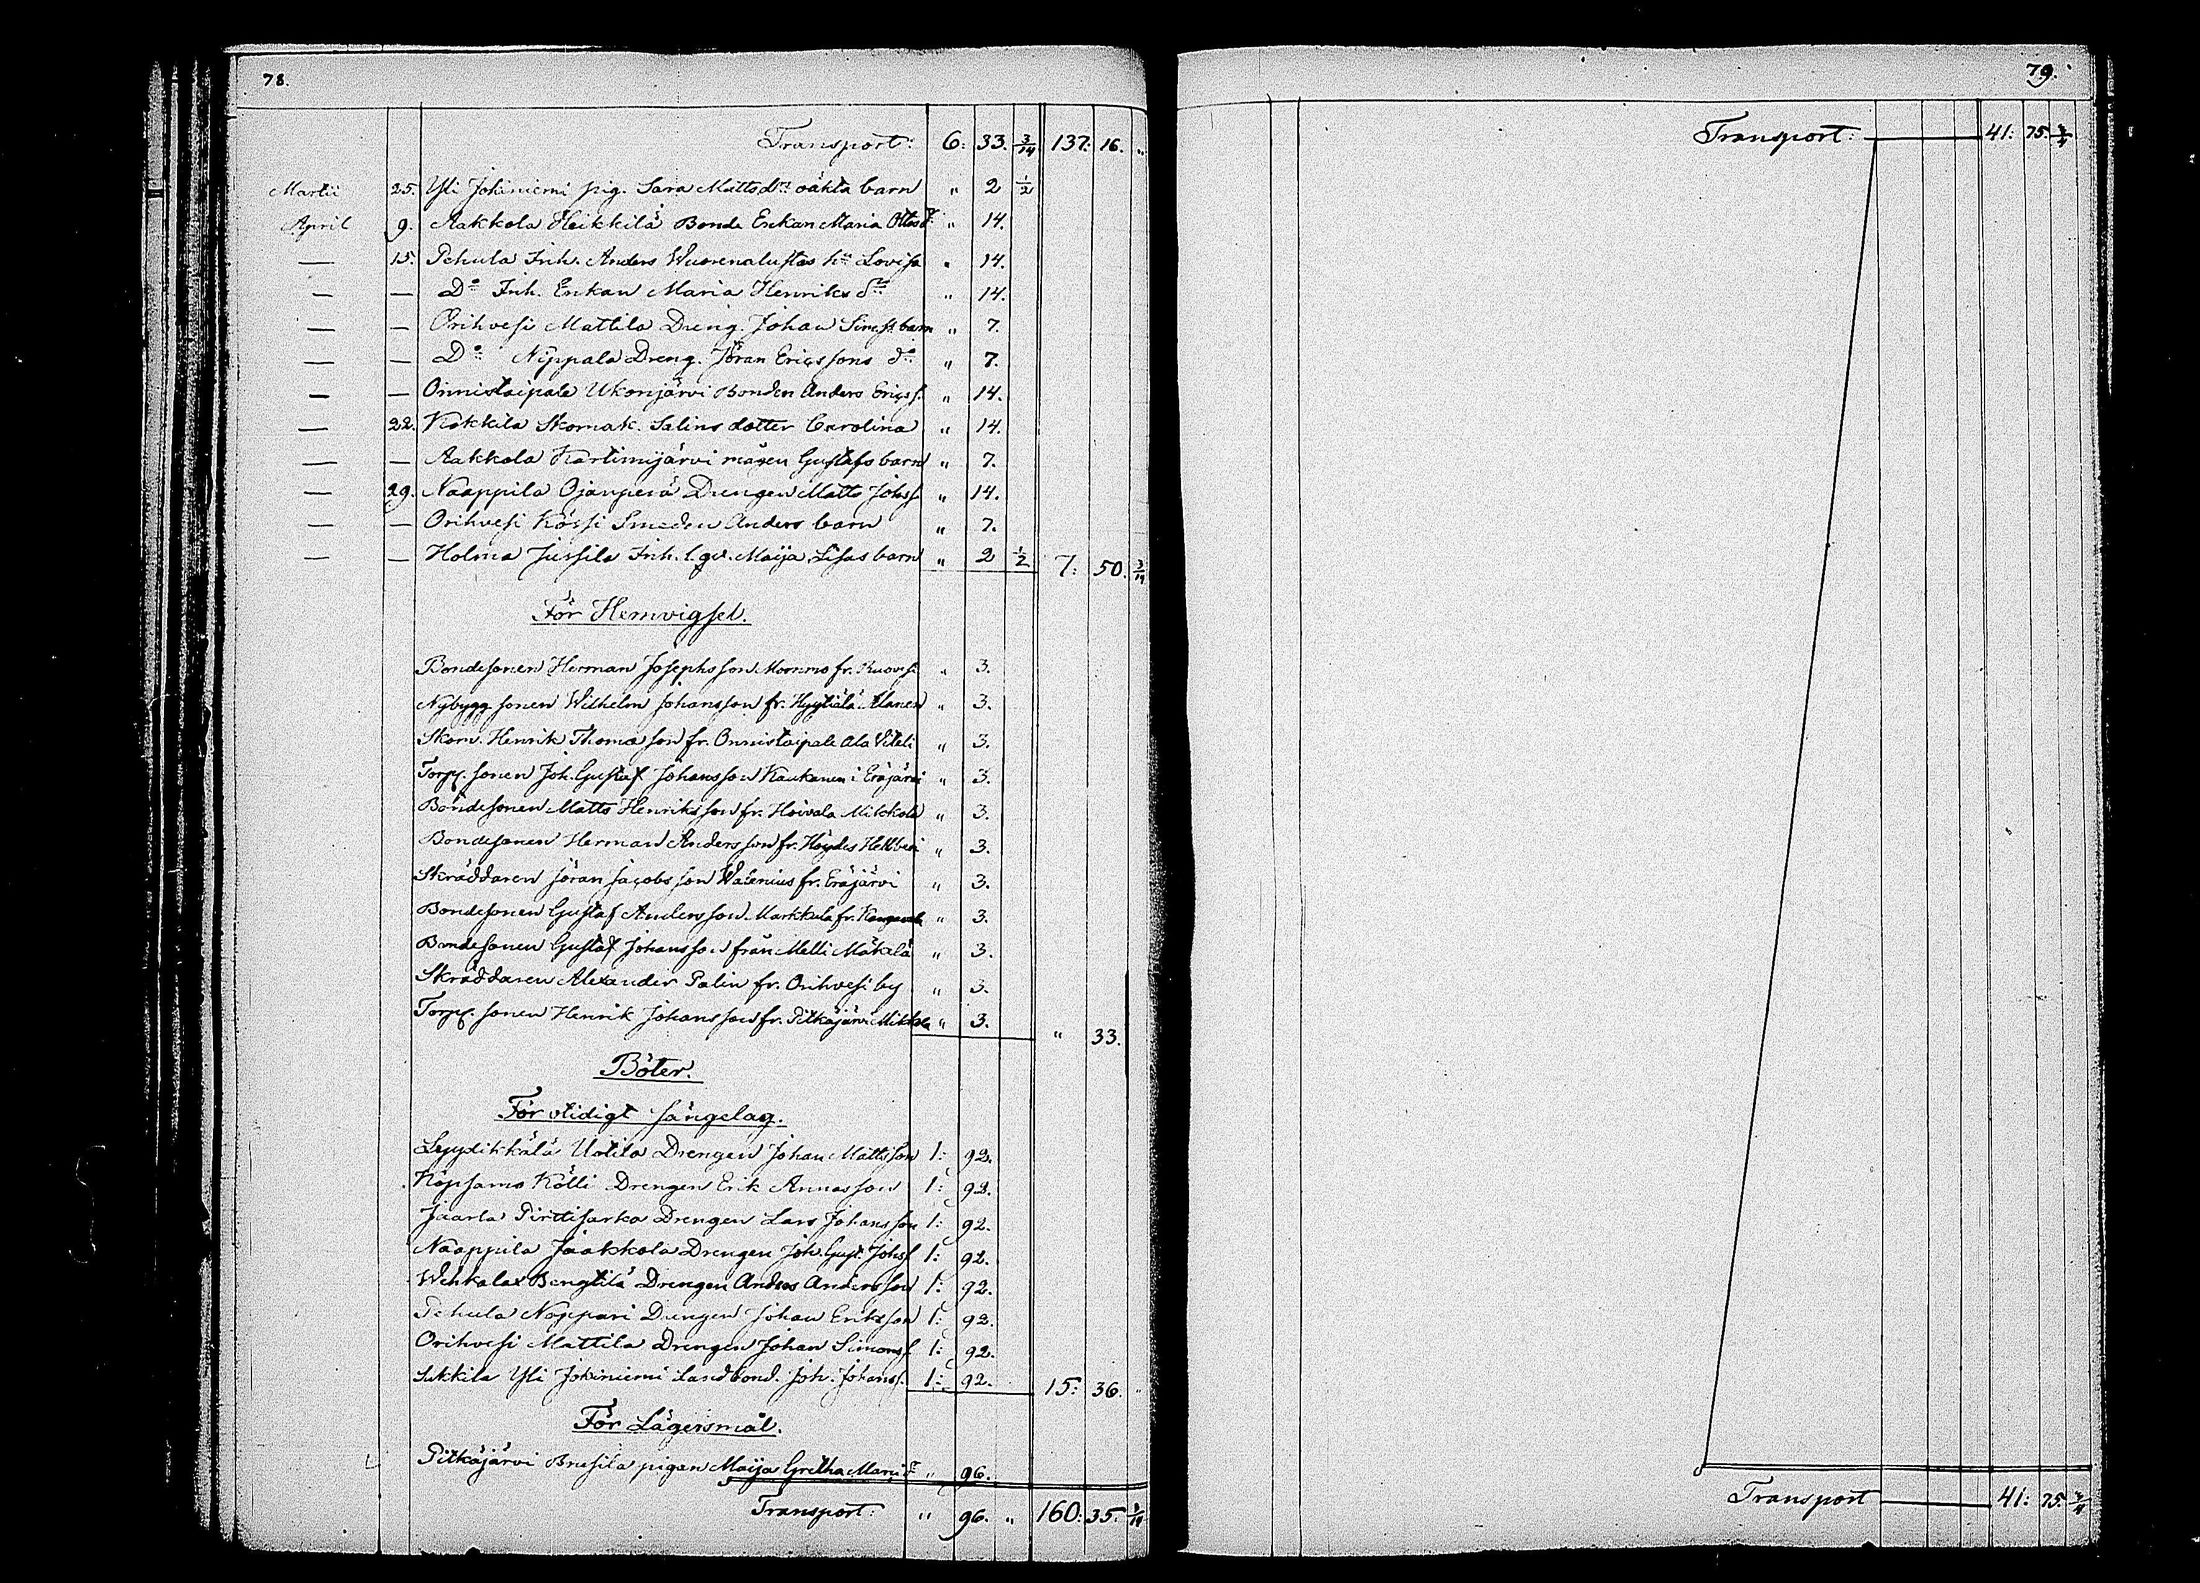 78.
Transport: 6: 33. 3/14 137: 16. "
Martii 25. Yli Jokiniemi pig. Sara Mattsdrs oäkta barn " 2 1/2
April 9. Aakkola Heikkilä Bonde Enkan Maria Ottosdr " 14.
— 15. Pehula Inh. Anders Wuorenalustas hu Lovisa " 14.
— — Do Inh. Enkan Maria Henriksdr " 14.
— — Orihvesi Mattila Dreng. Johan Simss. barn " 7.
— — Do Nippala Dreng. Jöran Ericssons do " 7.
— — Onnistaipale Ukonjärvi Bonden Anders Ericss. " 14.
— 22. Kokkila Skomak. Salins dotter Carolina " 14.
— — Aakkola Hartimijärvi mågen Gustafs barn " 7.
— 29. Naappila Ojanperä Drengen Matts Johss. " 14.
— — Orihvesi Kössi Smeden Anders barn " 7.
— — Holma Jussila Inh. l. qv. Maija Lisas barn " 2 1/2 7: 50. 3/14
För Hemvigsel.
Bondesonen Herman Josephsson Moormo fr. Ruovesi " 3.
Nybygg. sonen Wilhelm Johansson fr. Hyytiälä Alanen " 3.
Skom. Henrik Thomasson fr. Onnistaipale Ala Viteli " 3.
Torp. sonen Joh. Gustaf Johansson Kaukanen i Eräjärvi " 3.
Bondesonen Matts Henriksson fr. Hoivala Mikkola " 3.
Bondesonen Herman Andersson fr. " 3.
Skräddaren Jöran Jacobsson Walenius fr. Eräjärvi " 3.
Bondesonen Gustaf Andersson Markkula fr. Kangasala " 3.
Bondesonen Gustaf Johansson från Melli Mäkelä " 3.
Skräddaren Alexander Palin fr. Orihvesi by " 3.
Torp. sonen Henrik Johansson fr. Pitkäjärvi Mikkola " 3. " 33.
Böter.
För otidigt sängelag.
Lyydikkälä Uotila Drengen Johan Mattsson 1: 92.
Köpsamo Kölli Drengen Erik Annasson 1: 92.
Jaarla Pirttisarka Drengen Lars Johansson 1: 92.
Naappila Jaakkola Drengen Joh. Gust. Johss. 1: 92.
Wehkalax Bengtilä Drengen Anders Andersson 1: 92.
Pehula Noppari Drengen Johan Eriksson 1: 92.
Orihvesi Mattila Drengen Johan Simonss. 1: 92.
Sukkila Yli Jokiniemi Landbond. Joh. Johanss. 1: 92. 15: 36. "
För Lägersmål.
Pitkäjärvi Brusila pigan Maija Gretha " 96.
Transport: " 96. " 160: 35. 3/14
79.
Transport: 41: 75. 3/4
Transport 41: 75. 3/4